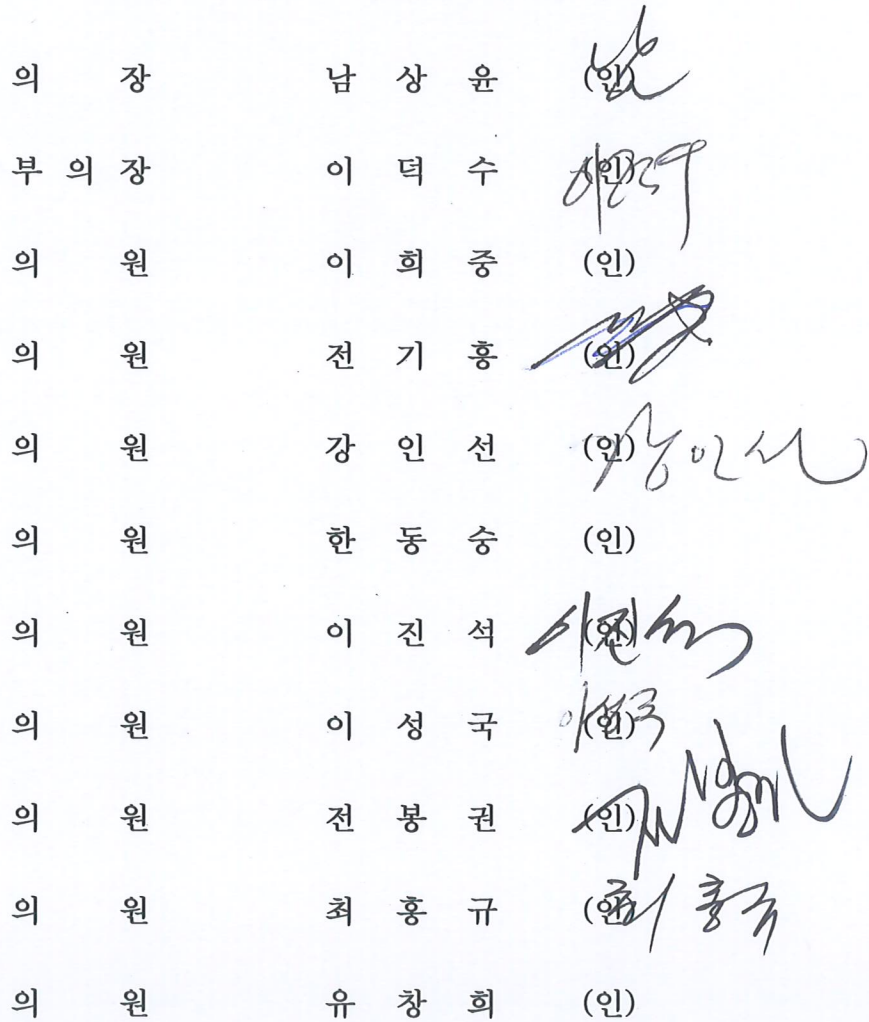 의 장 남 상 윤 (인)
부 의 장 이 덕 수 (인) 이덕수
의 원 이 희 중 (인)
의 원 전 기 흥 (인)
의 원 강 인 선 (인) 강인선
의 원 한 동 숭 (인)
의 원 이 진 석 (인) 이진석
의 원 이 성 국 (인) 이성국
의 원 전 봉 권 (인)
의 원 최 홍 규 (인) 최홍규
의 원 유 창 희 (인)